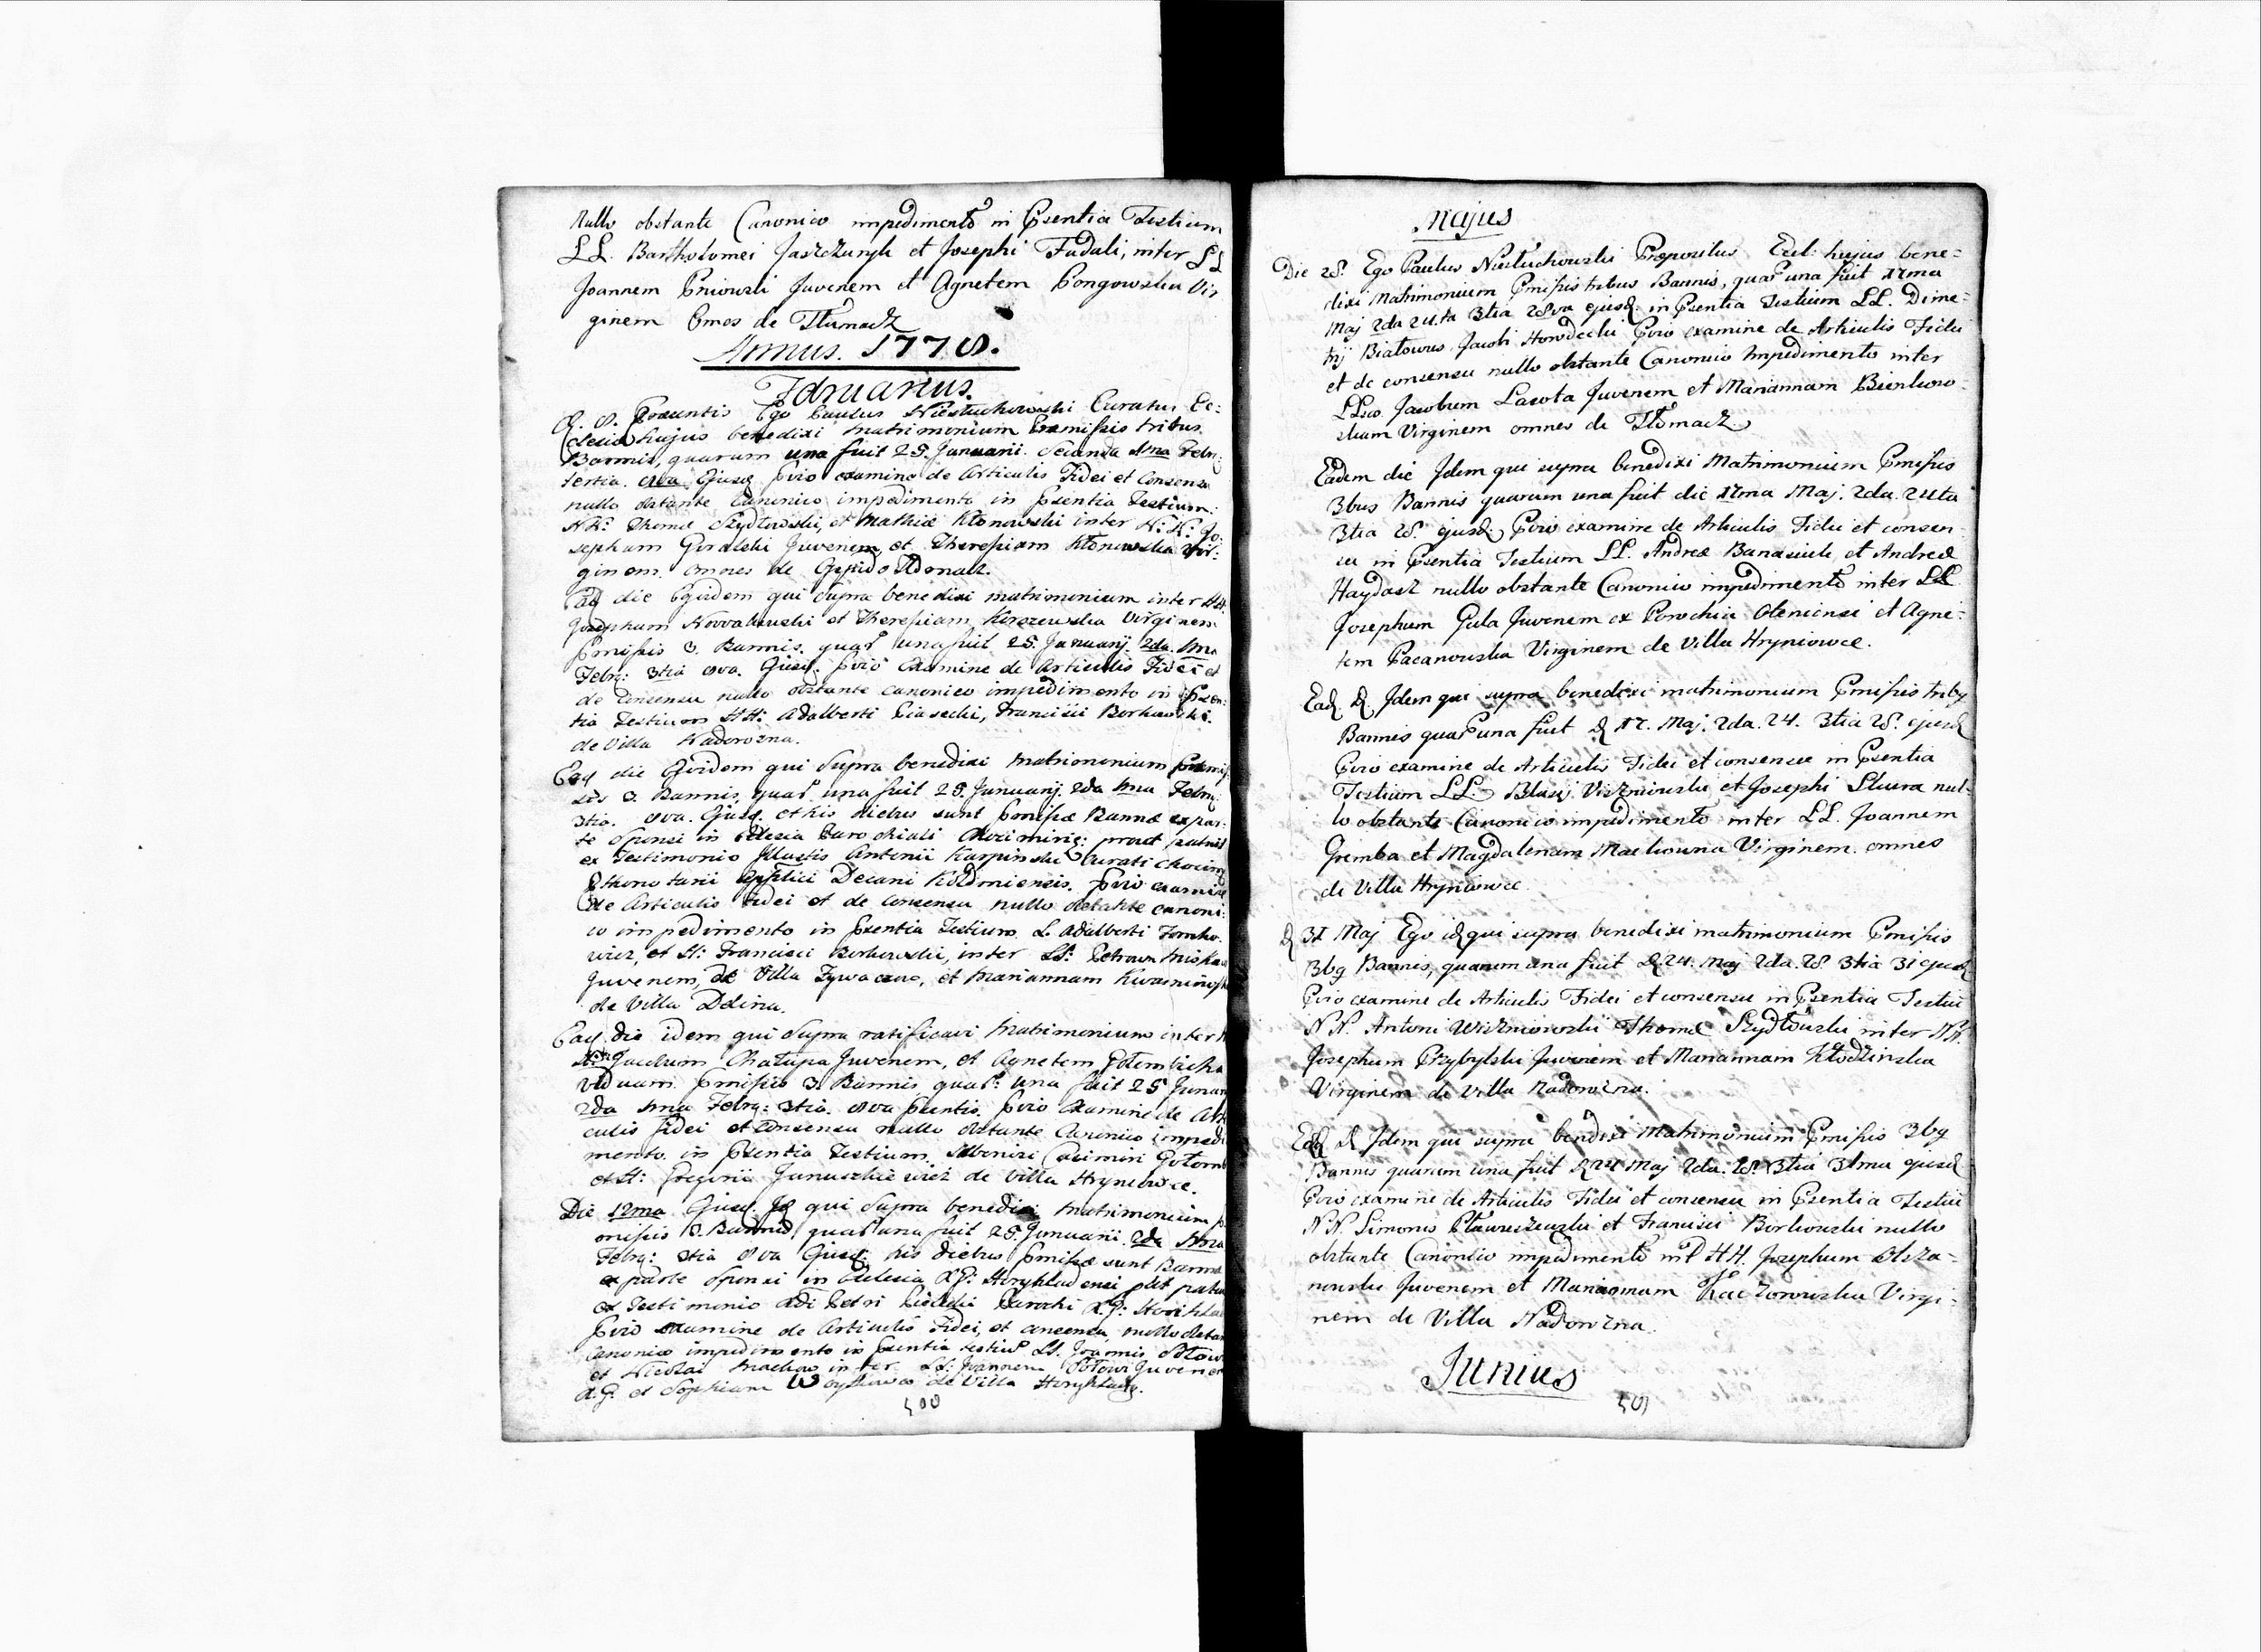 Nullo obstante Canonico impedimento in Psentia Testium
LL. Bartholomei Jaszczungk et Josephi Fudali, inter LL
Joannem Pniowski Juvenem et Agnetem Congowska Vir
ginem Omes de Tłumacz
Annus. 1778.
Februarius.
D. 8. Prasentis Ego Paulus Niestuchowski Curatus Ec:
clesiæ hujus benedixi matrimonium Præmissis tribus
Bannis, quarum una fuit 25. Januarii. Secunda 1ma Febr:
tertia. 8va Ejusd. pvio examine de Articulis Fidei et Consensu
nullo obstante Canonico impedimento in psentia Testium:
NN: Thomæ Szydłowski, et Mathiæ Kłonowski inter N: N: Jo:
sephum Goralski Juvenem, et Theresiam Kłonowska Vir:
ginem. omnes de Oppido Tłomacz.
Ead die Ejusdem qui Supra benedixi matrimonium inter HH.
Josephum Nowakowski et Theresiam Virginem
Pmissis 3. Bannis. quar: una fuit 25. Januarij. 2da. 1ma
Febr: 3tia 8va. Ejusd. pvio Examine de Articulis Fidei et
de Consensu nullo obstante canonico impedimento in psen:
tia Testium HH: Adalberti Piasecki, Francisci Borkowski.
de Villa Nadorozna.
Ead die Ejusdem qui Supra benedixi Matrimonium præmis
sis 3. Bannis, quar: una fuit 25. Januarij. 2da 1ma Febr:
3tia. 8va. Ejusd. et his diebus sunt pmissæ Bannæ ex par:
te Sponsi in Eclesia Parochiali prout patuit
ex Testimonio Illustris Antonii Karpinski Curati
Decani pvio examine
de Articulis fidei et de consensu nullo obstante canoni:
co impedimento in psentia Testium L. Adalberti
wicz, et H: Francisci Borkowski, inter LL: Petrum
Juvenem, de Villa Zywaczow, et Mariannam
de Villa Dolina.
Ead. die idem qui Supra ratificavi Matrimonium inter
Chałupa Juvenem, et Agnetem
viduam. pmissis 3. Bannis quar: una fuit 25 Januar
2da 1ma Febr: 3tia. 8va psentis. pvio Examine de Arti
culis fidei et Consensu nullo obstante Canonico impedi
mento. in psentia Testium. Casimiri
et H: Gregorii de Villa Hryniowce.
Die 12ma Ejusd. Id qui Supra benedixi Matrimonium p
missis 3. Bannis, quar una fuit 25. Januarii. 2da 1ma
Febr: 3tia 8va Ejusd: his diebus pmissæ sunt Bannæ
ex parte Sponsi in Eclesia R.G: pt patuit
ex Testimonio Petri Parochi R.G:
pvio examine de Articulis Fidei, et consensu, nullo obstan
Canonico impedimento in psentia testiu LL. Joannis
et Nicolai inter. LL: Joannem Juvenem
R.G. et Sophiam de Villa
500
Majus
Die 28. Ego Paulus Niestuchowski Præpositus Eccl: hujus bene=
dixi Matrimonium Pmissis tribus Bannis, quar una fuit 17ma
Maj 2da 24.ta 3tia 28va ejusd. in Psentia Testium LL. Dime=
trij Białowus Jacobi Howdecki Pvio examine de Articulis Fidei
et de consensu nullo obstante Canonico Impedimento inter
LLsos. Jacobum Lasota Juvenem et Mariannam Bienkow
skam Virginem omnes de Tłomacz
Eadem die Idem qui supra benedixi Matrimonium Pmissis
3bus Bannis quarum una fuit die 17ma Maj. 2da. 24ta
3tia 28. ejusd. Pvio examine de Articulis Fidei et consen
su in Psentia Testium LL. Andreæ Banasiuk et Andreæ
Haydasz nullo obstante Canonico impedimento inter LL
Josephum Gula Juvenem ex Parochia Oleniensi et Agne=
tem Pacanowska Virginem de Villa Hryniowce.
Ead. D. Idem qui supra benedixi matrimonium Pmissis tribg
Bannis quar una fuit D 17. Maj. 2da. 24. 3tia 28. ejusd
Pvio examine de Articulis Fidei et consensu in Psentia
Testium LL. Blasij Viszniowski et Josephi nul=
lo obstante Canonico impedimento inter LL. Joannem
Gremba et Magdalenam Machowna Virginem. omnes
de Villa Hryniowce.
D 31 Maj Ego id qui supra benedixi matrimonium Pmissis
3bg Bannis, quarum una fuit D. 24. Maj 2da. 28 3tia 31 ejusd
Pvio examine de Articulis Fidei et consensu in Psentia Testiu
NN. Antoni Wiszniowski Thomæ Szydłowski inter NN.
Josephum Przybylski Juvenem et Mariannam Kłodzinska
Virginem de Villa Nadorozna.
Ead. D. Idem qui supra benedixi Matrimonium Pmissis 3bg
Bannis quarum una fuit D 24 Maj 2da. 28. 3tia 31ma ejusd
Pvio examine de Articulis Fidei et consensu in Psentia Testiu
NN. Simonis et Francisci Borkowski nullo
obstante Canonico impedimento int HH. Josephum Olsza=
nowski Juvenem et Mariannam Kaczorowska Virgi=
nem de Villa Nadorozna.
Junius
501